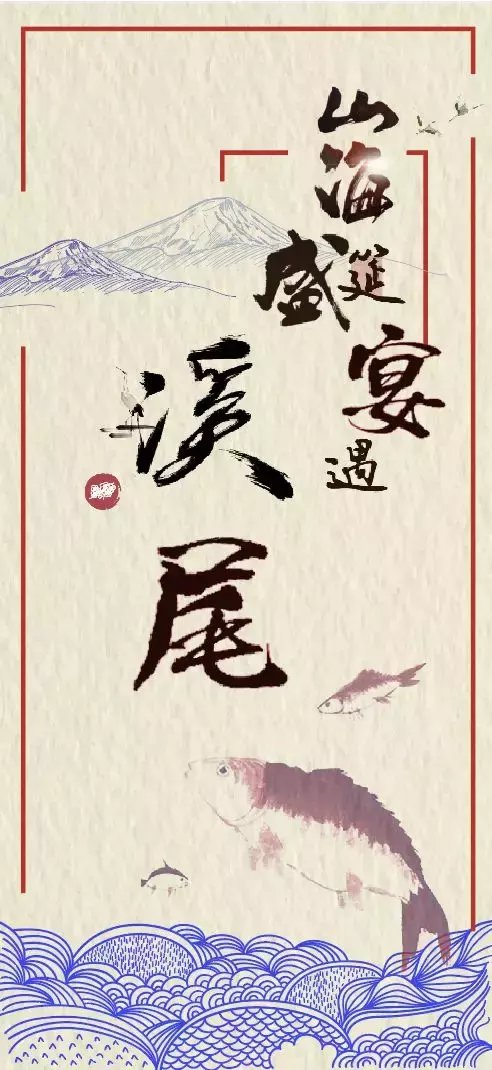 山海盛筵
宴遇
溪尾